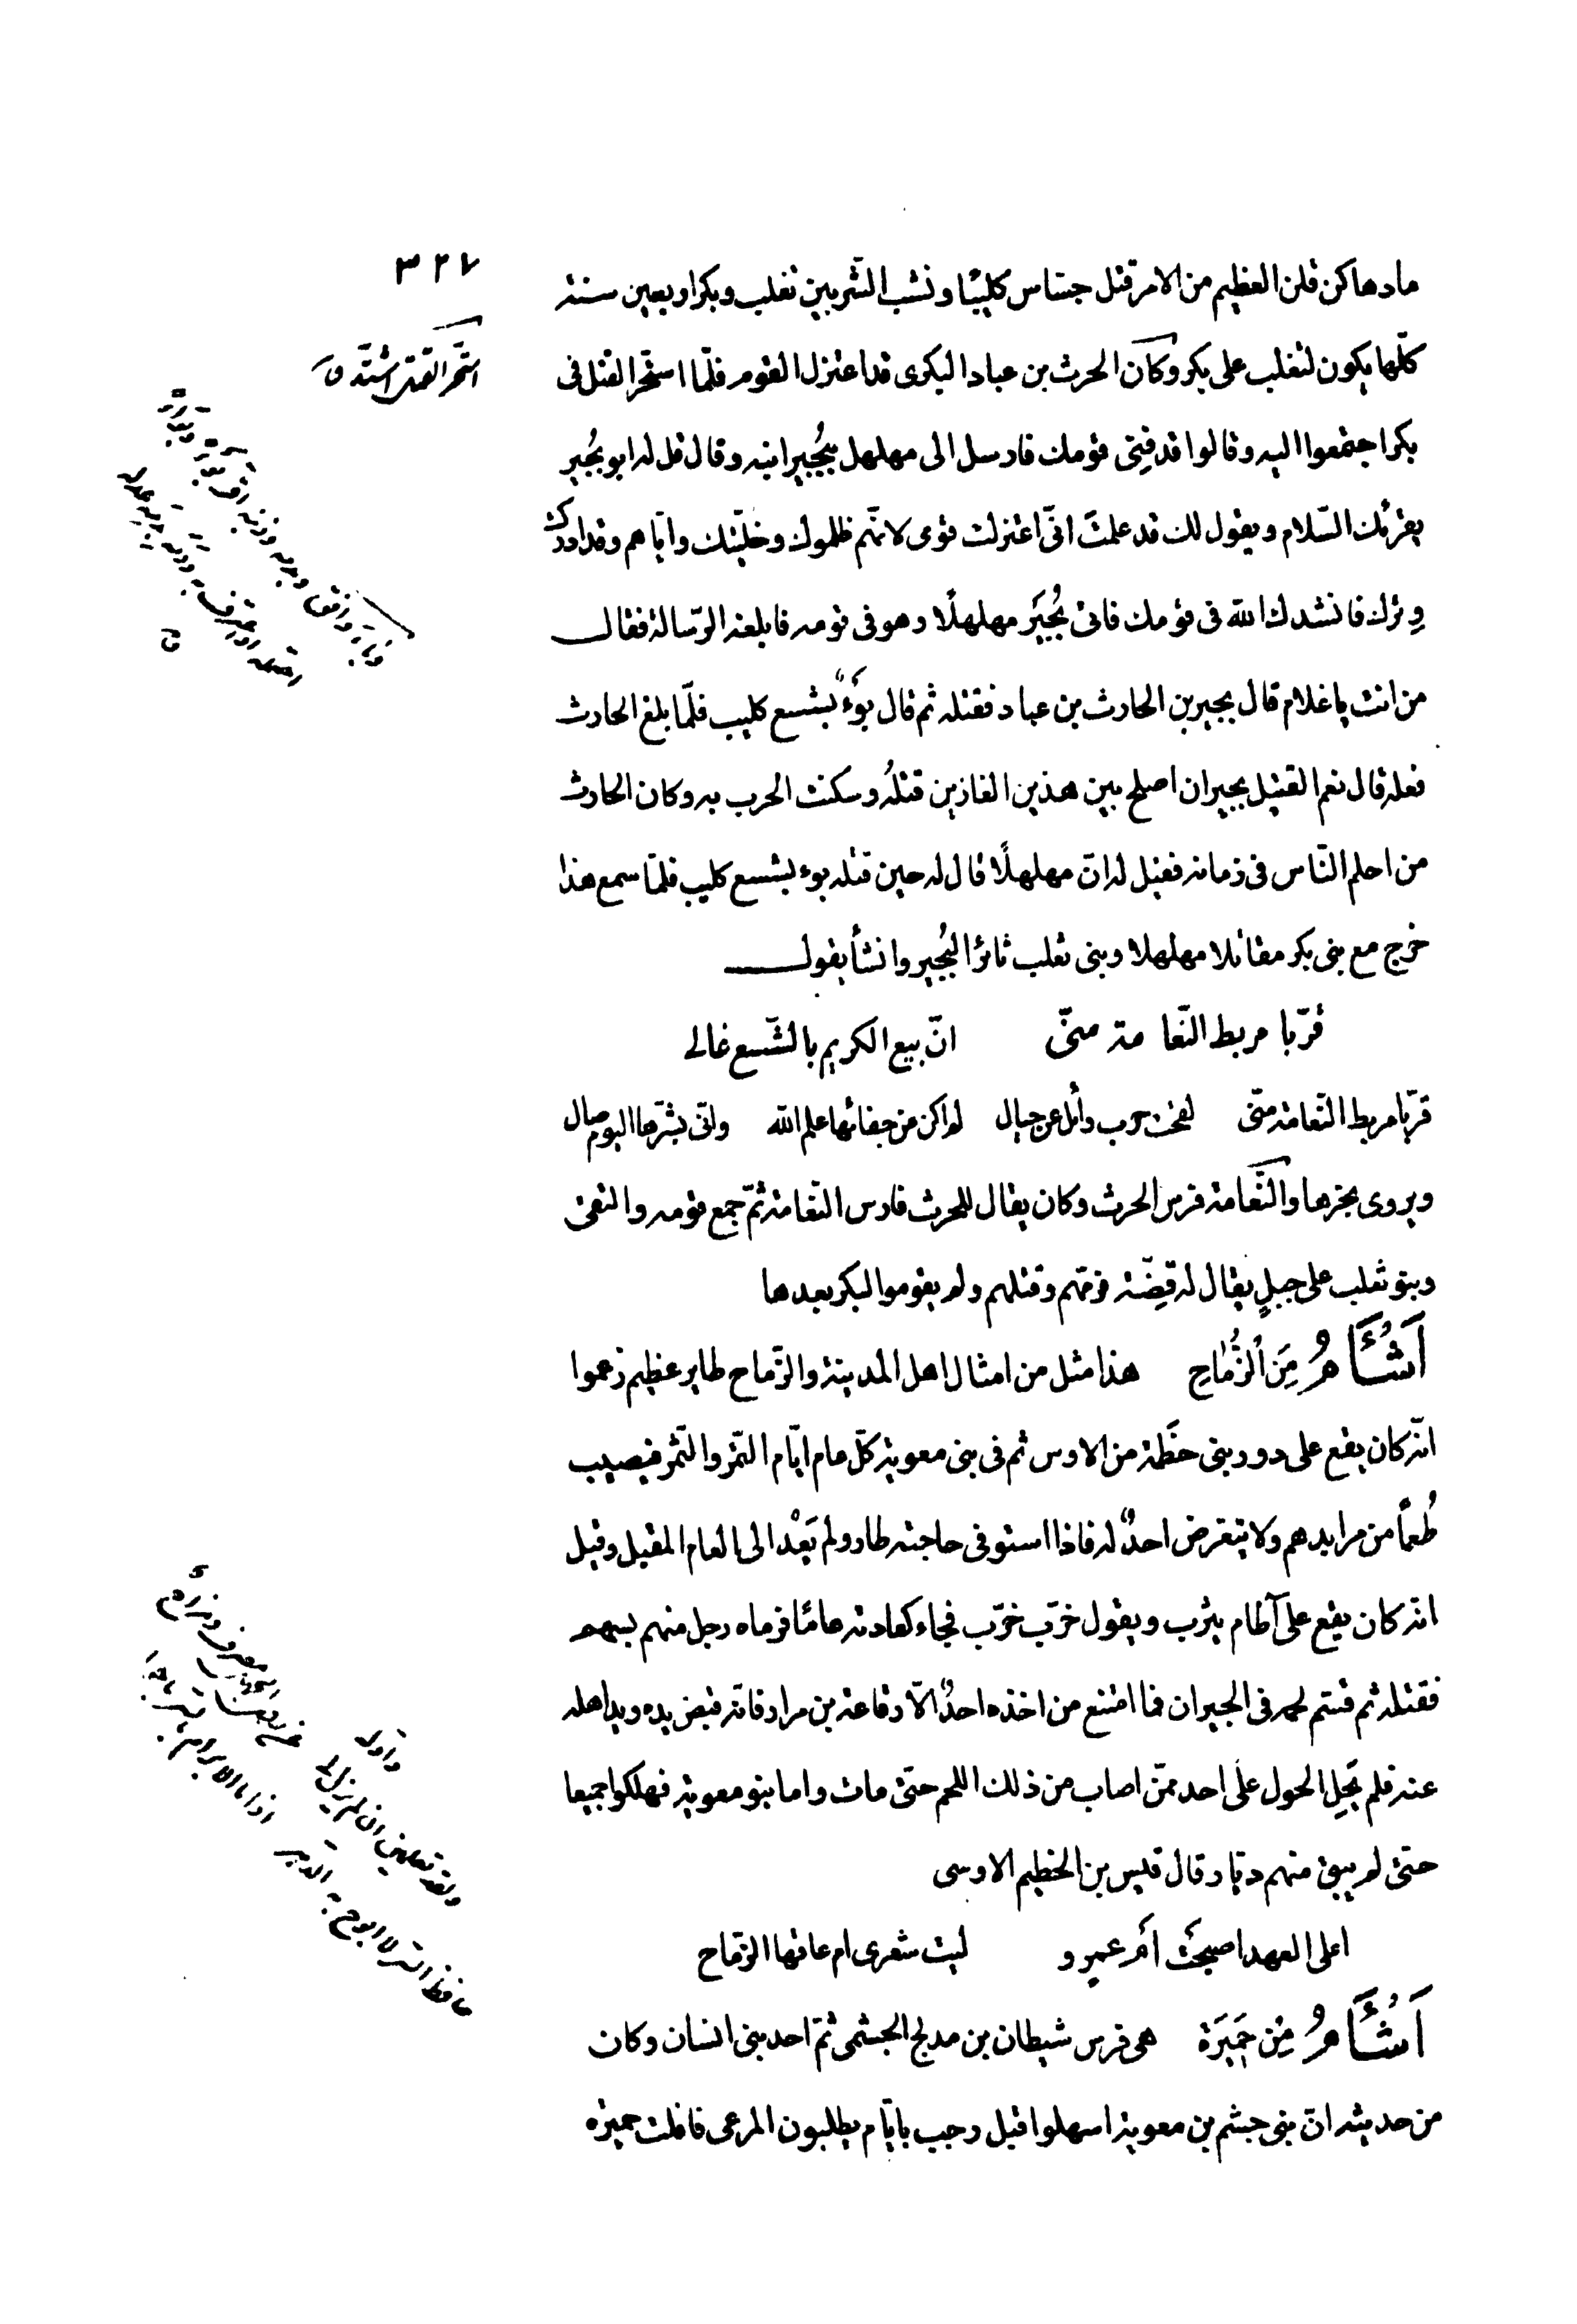 ٣٢٧
مادهاكن قلن العظيم من الامر قتل جسّاس كليبًا ونشب الشّر بين تغلب وبكر اربعين سنة
كلّها يكون لتغلب على بكر وكان الحرث بن عباد البكرى قد اعتزل القوم فلمّا استحرّ القتل فى
استحرّ القتل اشتدّ ق
بكر اجتمعوا اليه وقالوا قد فنِىَ قومك فارسل الى مهلهل ببُجَير ابنه وقال قل له ابو بُجَير
يقرئك السّلام ويقول لك قد علمتَ انّى اعتزلت قومى لانّهم ظلموك وخلّيتك وايّاهم وقد ادركت
وِترك فانشدك الله فى قومك فاتى بُجَيَر مهلهلًا وهو فى قومه فابلغه الرّسالة فقال
من انت ياغلام قال بجير بن الحارث بن عباد فقتله ثم قال بوْءَ بشسع كليب فلمّا بلغ الحارث
فعله قال نعم القتيل بجير ان اصلح بين هذين الغارين قتلُه وسكنت الحرب به وكان الحارث
من احلم النّاس فى زمانه فقيل له انّ مهلهلًا قال له حين قتله بوء بشسع كليب فلمّا سمع هذا
خرج مع بنى بكر مقاتلا مهلهلا وبنى تغلب ثائرًا لبُجَير وانشأ يقول
قرّبا مربط النّعامة منّى انّ بيع الكريم بالشّسع غالى
قرّبا مربط النّعامة منّى لقحت حرب وائل عن حيال لم اكن من جناتها علم الله وانّى بشرّها اليوم صال
ويروى بحرها والنّعامة فرس الحرث وكان يقال للحرث فارس النّعامة ثمّ جمع قومه والتقى
وبنو تغلب على جبلٍ يقال له قِضّة فهزمهم وقتلهم ولم يقوموا لبكر بعدها
اَشْأَمُ مِنَ الزُّمّاحِ هذا مثل من امثال اهل المدينة والزّماح طاير عظيم زعموا
انّه كان يقع على دور بنى خَطْمة من الاوس ثم فى بنى معوية كلّ عام ايّام التّمر والثّمر فيصيب
طُعمًا من مرابدهم ولا يتعرّض احدٌ له فاذا استوفى حاجته طار ولم يَعُد الى العام المقبل وقيل
انّه كان يقع على آطام يثرب ويقول خرّب خرّب فجاء كعادته عامًا فرماه رجل منهم بسهم
فقتله ثم قسّم لحمه فى الجيران فما امتنع من اخذه احدٌ الّا رفاعة بن مرار فانّه قبض يده ويد اهله
عنه فلم يَحُلِ الحول على احد ممّن اصاب من ذلك اللحم حتّى مات واما بنو معوية فهلكوا جميعا
حتّى لم يبق منهم ديّار قال قيس بن الخطيم الاوسى
اعلى العهد اصبحَت اُمّ عمرو ليت شعرى ام عاقها الزّماح
اَشْأَمُ مِن حُمَيرَة هى فرس شيطان بن مدلج الجشمى ثمّ احد بنى انسان وكان
من حديثه انّ بنى جشم بن معوية اسهلوا قبل رجب بايّام يطلبون المرعى فافلت حميرة